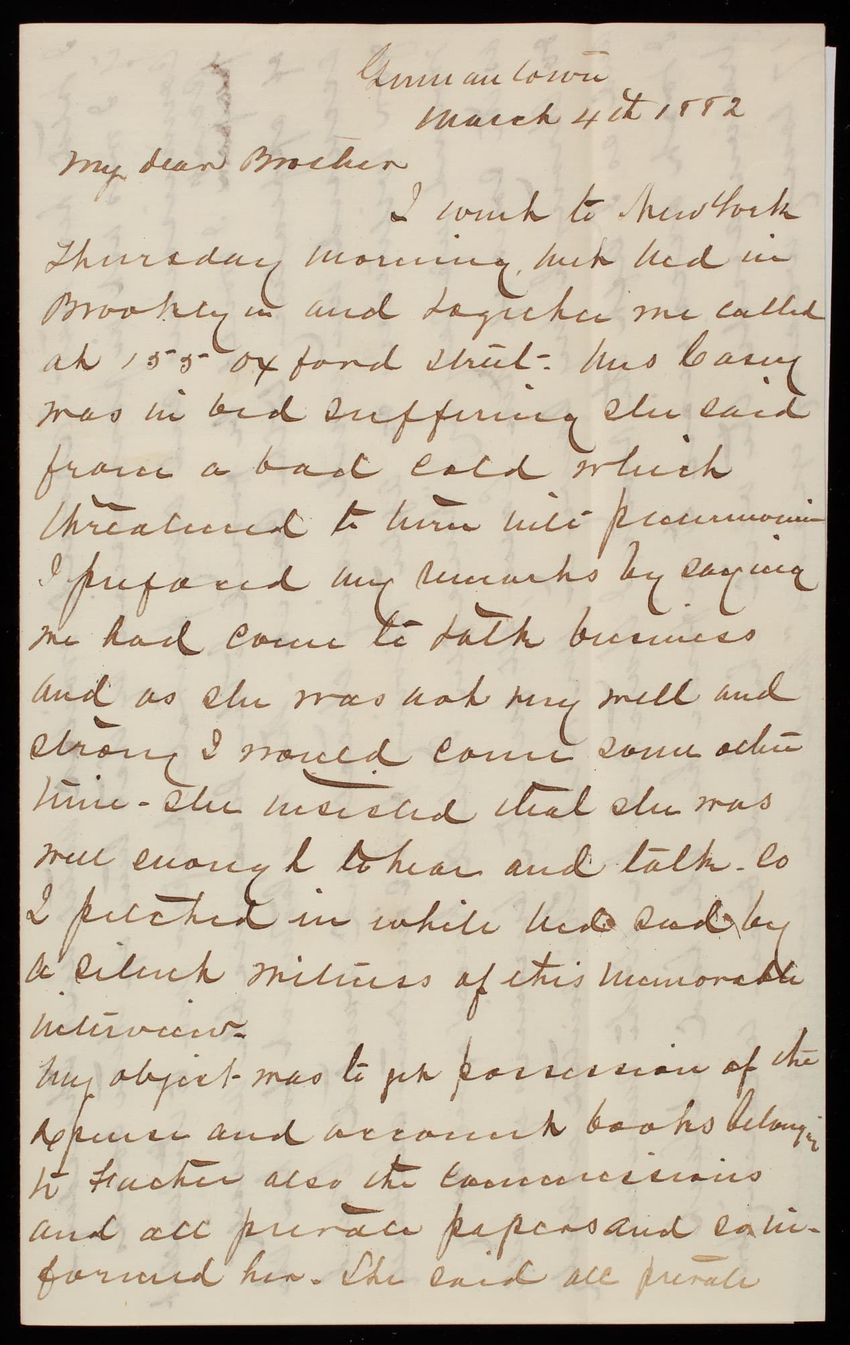 Germantown
March 4th 1882
My dear Brother
I went to New York
Thursday morning, met Ned in
Brooklyn and together we called
at 155 Oxford Street. Mrs Casey
was in bed suffering she said
from a bad cold which
threatened to turn into pneumonia
I prefaced my remarks by saying
we had come to talk business
and as she was not very well and
strong I would come some other
time - She insisted that she was
well enough to hear and talk - So
I pitched in while Ned sad by
a silent witness of this memorable
interview -
My object was to get possession of the
expense and account books belonging
to Father also the Commissions
and all private papers and so in-
formed her - She said all private